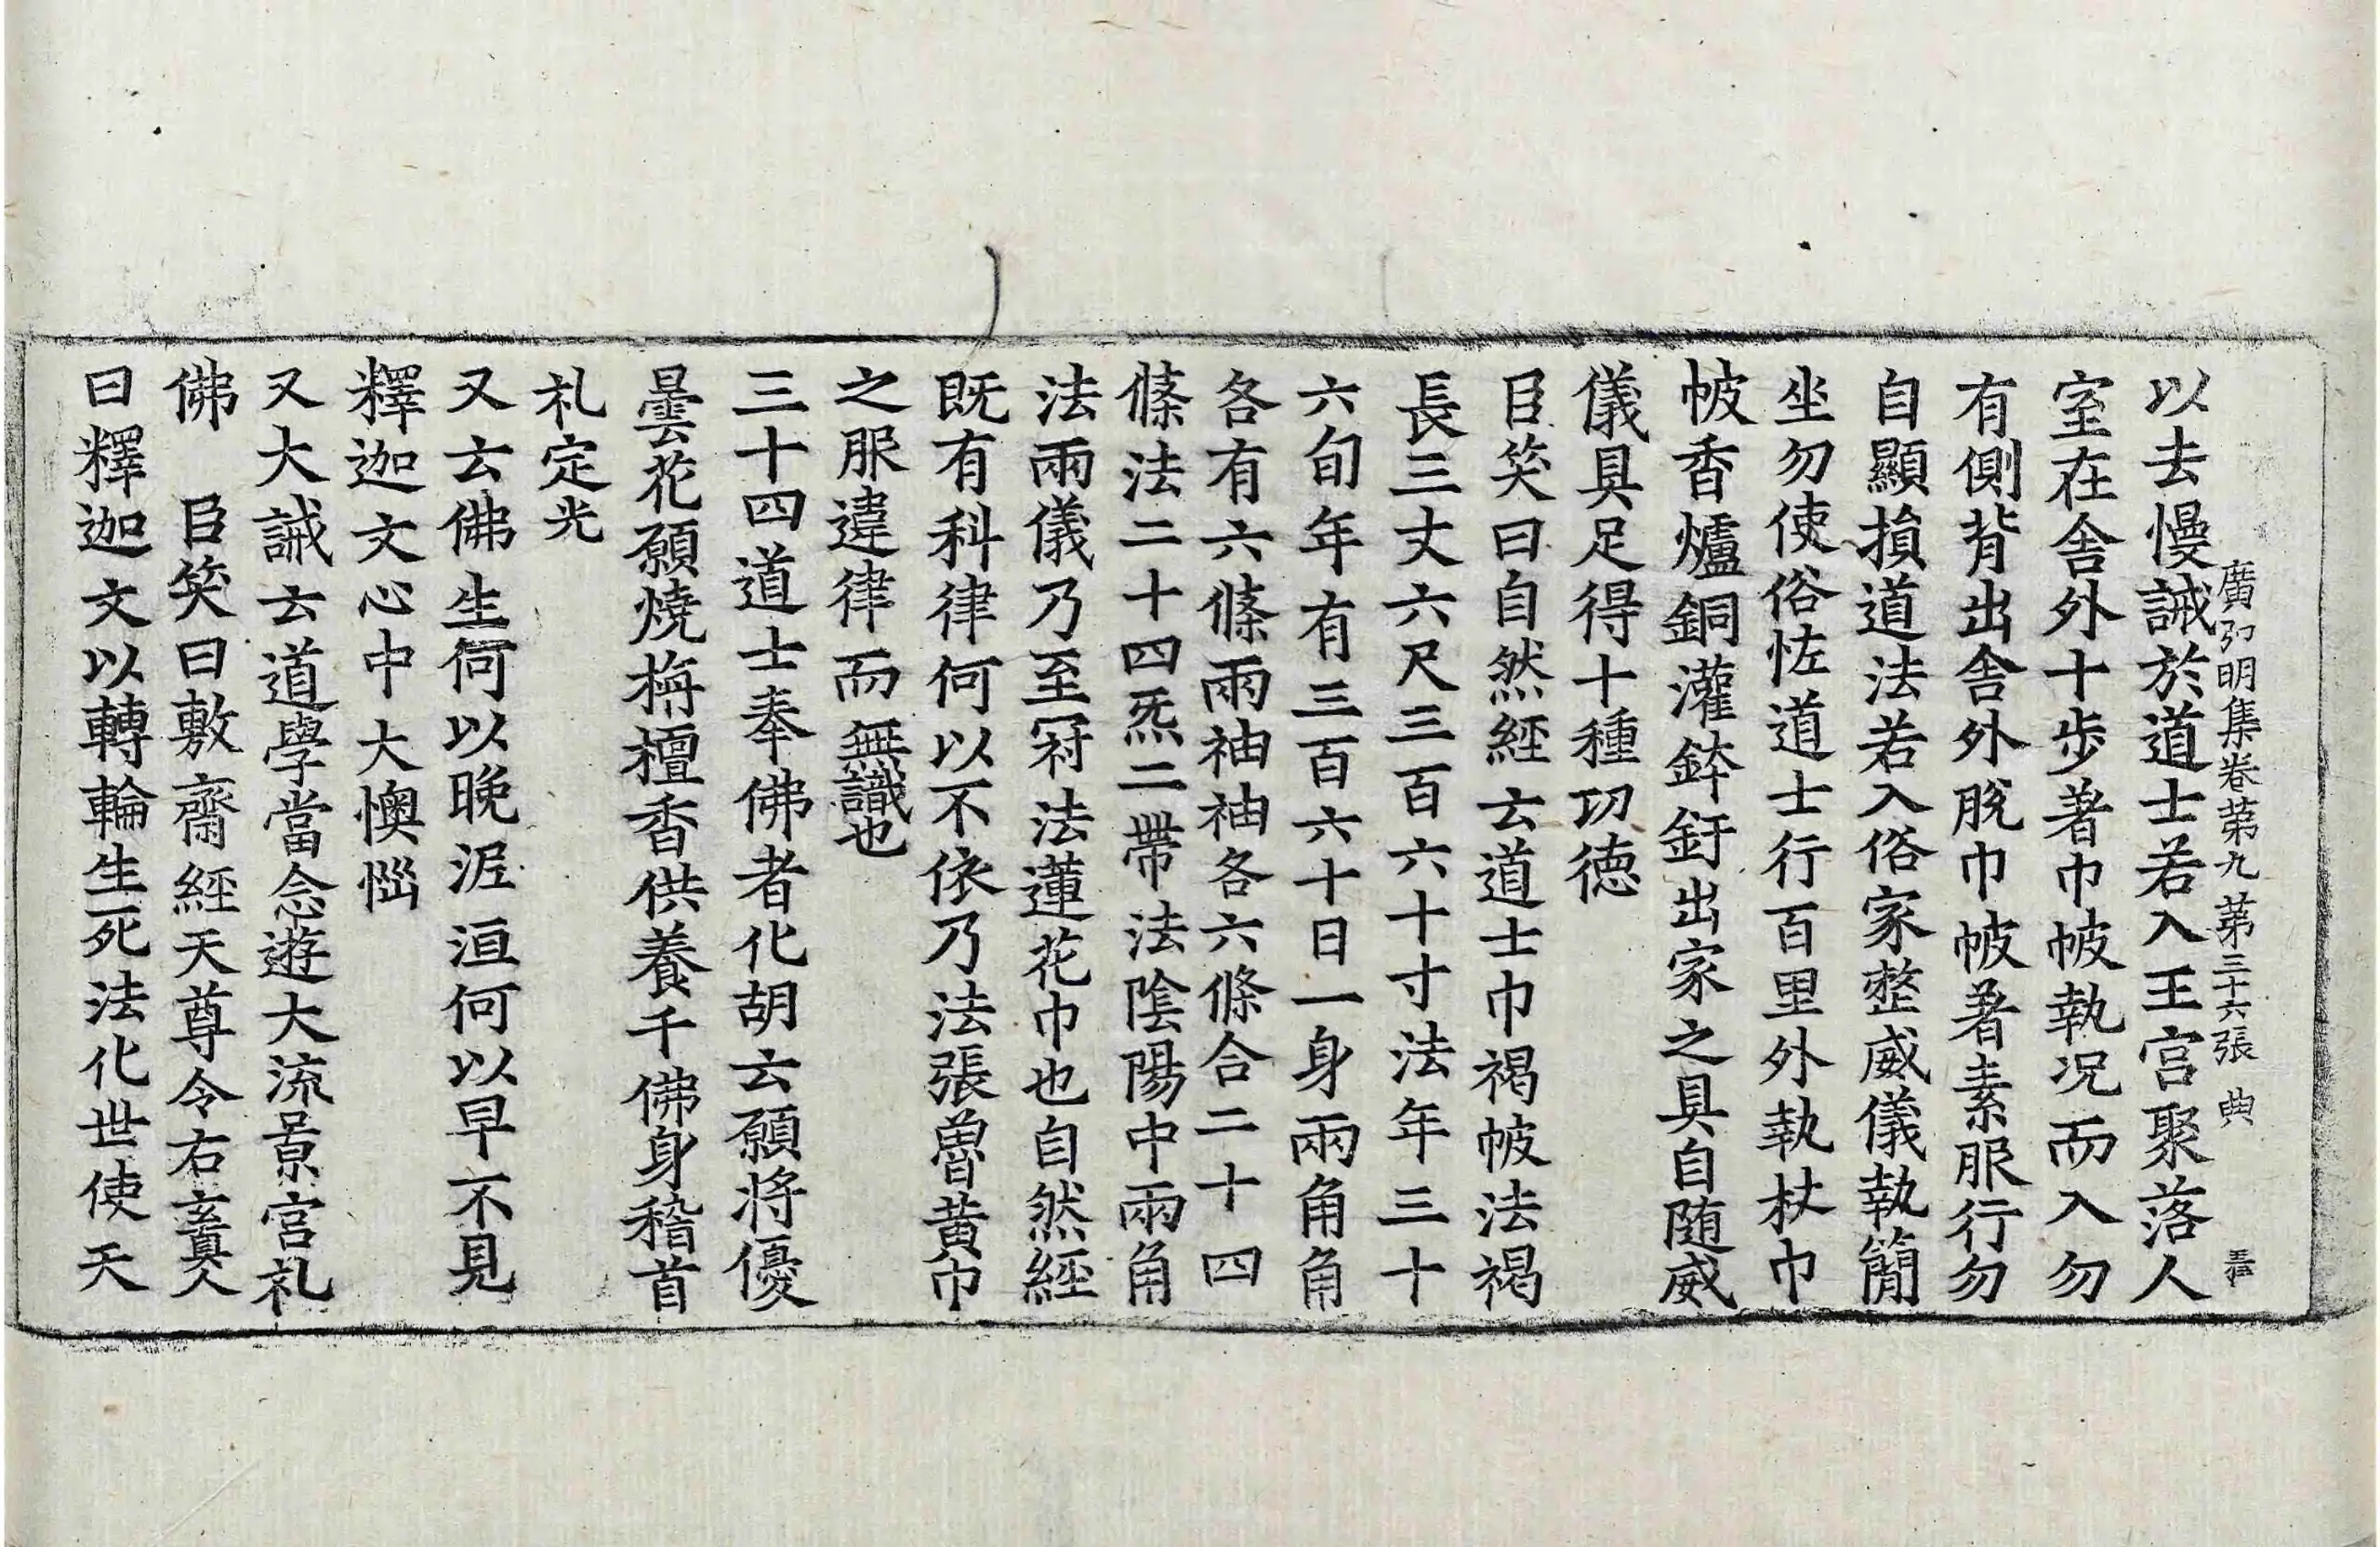 廣弘明集卷第九 第三十六張 典
以去慢誡於道士若入王宮聚落人
室在舎外十步著巾帔執况而入勿
有側背出舎外脫巾帔著素服行勿
自顯損道法若入俗家整威儀執簡
坐勿使俗恠道士行百里外執杖巾
帔香爐銅灌鉢釪出家之具自随威
儀具足得十種功德
臣笑曰自然經云道士巾褐帔法褐
長三丈六尺三百六十寸法年三十
六旬年有三百六十日一身兩角角
各有六條兩袖袖各六條合二十四
條法二十四炁二帶法陰陽中兩角
法兩儀乃至冠法蓮花巾也自然經
既有科律何以不依乃法張魯黃巾
之服違律而無識也
三十四道士奉佛者化胡云願將優
曇花願燒栴檀香供養千佛身稽首
礼定光
又云佛生何以晚泥洹何以早不見
釋迦文心中大懊惱
又大誡云道學當念遊大流景宮礼
佛 臣笑曰敷齋經天尊令右玄真人
曰釋迦文以轉輪生死法化世使天